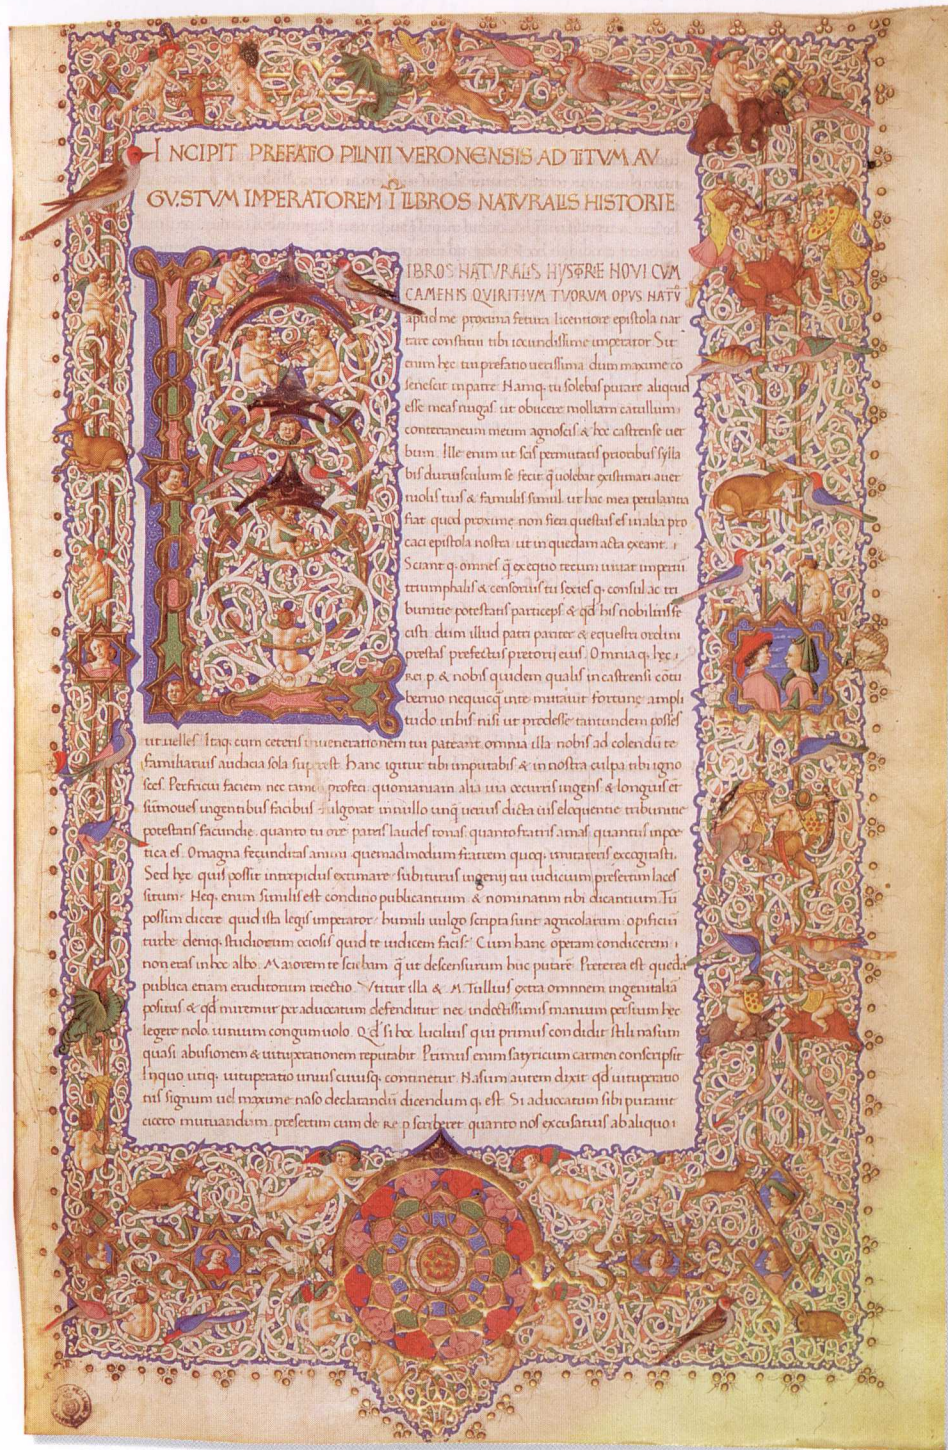 INCIPIT PREFATIO PLINII VERONENSIS AD TITVM AV
GVSTVM IMPERATOREM I LIBROS NATVRALIS HISTORIE
LIBROS NATVRALIS HYSTORIE NOVI CVM
CAMENIS QVIRITIVM TVORVM OPVS NATV
apud me proxima fetura licentiore epistola nar
rare constitui tibi iocundissime imperator Sit
enim hęc tui prefatio uerissima dum maxime cō
senescit in patre Namq; tu solebas putare aliquid
esse meas nugas ut obicere molliam catullum
conterraneum meum agnoscis & hoc castrense uer
bum. Ille enim ut scis permutatis prioribus sylla
bis duriusculum se fecit q̄ uolebat existimari a uer
nolis tuis & famulis simul ut hac mea petulantia
fiat quod proxime non fieri questus es in alia pro
caci epistola nostra ut in quedam acta exeant.
Sciant q; omnes q̄ ex equo tecum uiuat imperiū
triumphalis & censorius tu sexies q; consul ac tri
bunitie potestatis particeps & qđ his nobilius fe
cisti dum illud patri pariter & equestri ordini
prestas prefectus pretorii eius Omnia q; hęc
Rei p. & nobis quidem qualis in castrensi cōtu
bernio nequicq̄ in te mutauit fortunę ampli
tudo in his nisi ut prodesse tantundem posses
ut uelles Itaq; cum ceteris in uenerationem tui pateant omnia illa nobis ad colendū te
familiarius audacia sola superest Hanc igitur tibi imputabis & in nostra culpa tibi igno
sces. Perfricui faciem nec tamen profeci quoniam alia uia occurris ingens & longius et
sūmoues ingentibus facibus Fulgorat in nullo unq̄ uerius dicta uis eloquentie tribunitie
potestatis facundie. quanto tu ore patris laudes tonas quanto fratris amas quantus in poe
tica es. O magna fecunditas animi quemadmodum fratrem quoq; imitareris excogitasti.
Sed hęc quis possit intrepidus extimare subiturus ingenii tui iudicium presertim laces
situm Neq; enim similis est conditio publicantium & nominatim tibi dicantium Tū
possim dicere quid ista legis imperator humili uulgo scripta sunt agricolarum opificū
turbe deniq; studiorum ociosis quid te iudicem facis? Cum hanc operam condicerem
non eras in hoc albo. Maiorem te sciebam q̄ ut descensurum huc putarē Preterea est quedā
publica etiam eruditorum reiectio Vtitur illa & M. Tullius extra omnem ingenii aliā
positus & qđ miremur per aduocatum defenditur nec indoctissimis manium persium hec
legere nolo. iunium congum uolo. Qđ si hoc lucilius qui primus condidit stili nasum
quasi abusionem & uituperationem reputabit Primus enim satyricum carmen conscripsit
In quo utiq; uituperatio unius cuiusq; continetur Nasum autem dixit qđ uituperatio
nis signum uel maxime naso declarandū dicendum q; est. Si aduocatum sibi putauit
cicero mutuandum. presertim cum de Re p scriberet quanto nos excusatius ab aliquo